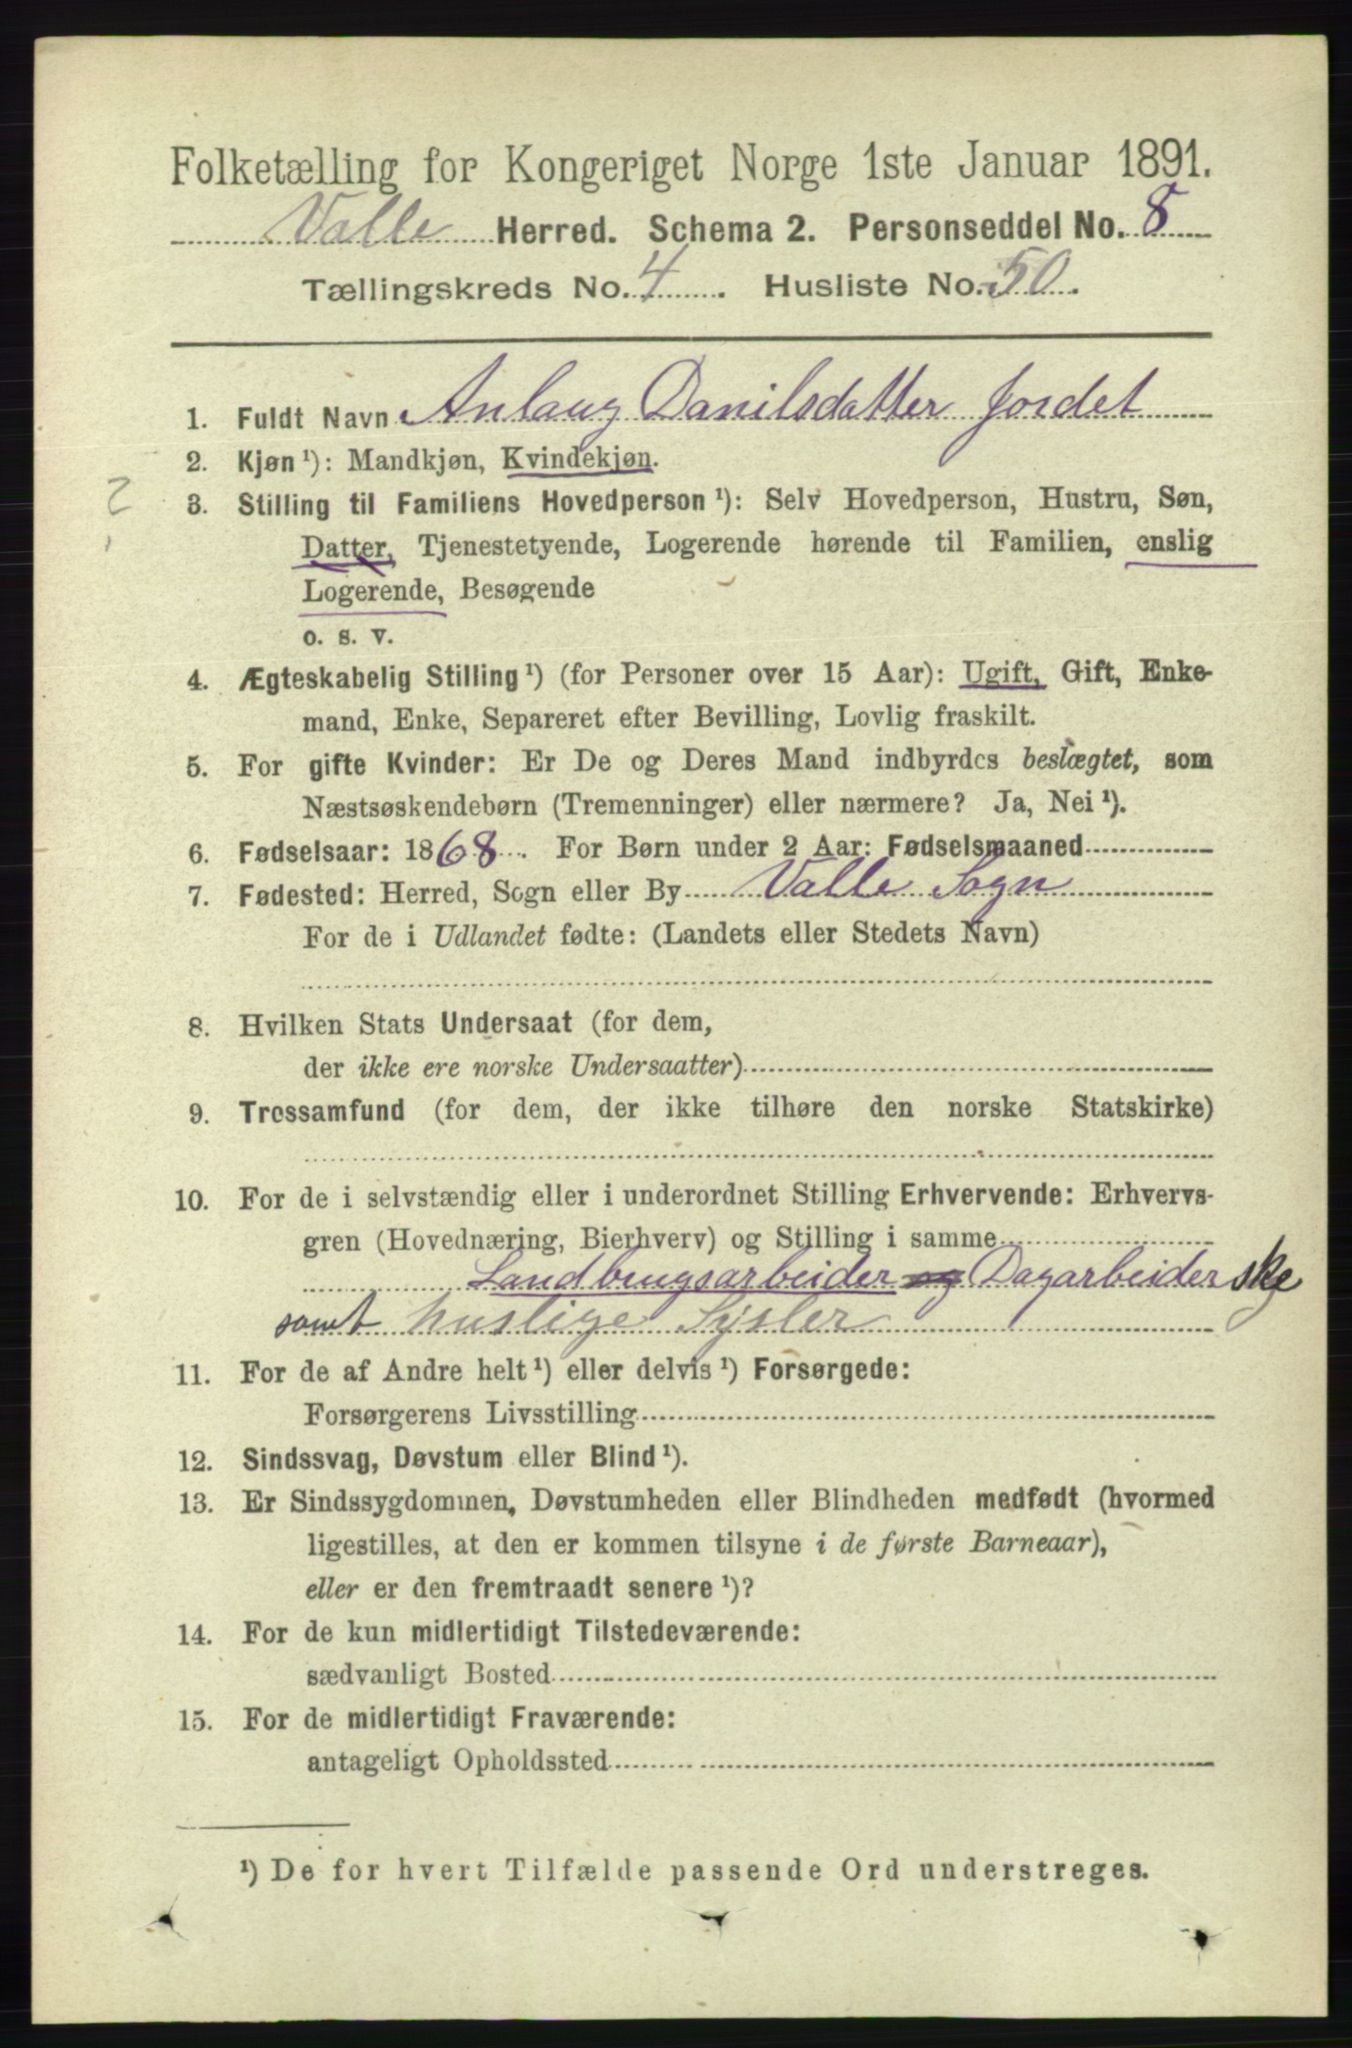 Folketælling for Kongeriget Norge 1ste Januar 1891.
Valle Herred. Schema 2. Personseddel No. 8
Tællingskreds No. 4. Husliste No. 50.
1. Fuldt Navn Anlaug Danilsdatter Jordet
2. Kjøn ¹): Mandkjøn, Kvindekjøn.
2
3. Stilling til Familiens Hovedperson ¹): Selv Hovedperson, Hustru, Søn,
Datter, Tjenestetyende, Logerende hørende til Familien, enslig
Logerende, Besøgende
o. s. v.
4. Ægteskabelig Stilling ¹) (for Personer over 15 Aar): Ugift, Gift, Enke-
mand, Enke, Separeret efter Bevilling, Lovlig fraskilt.
5. For gifte Kvinder: Er De og Deres Mand indbyrdes beslægtet, som
Næstsøskendebørn (Tremenninger) eller nærmere? Ja, Nei ¹).
6. Fødselsaar: 1868. For Børn under 2 Aar: Fødselsmaaned
7. Fødested: Herred, Sogn eller By Valle Sogn
For de i Udlandet fødte: (Landets eller Stedets Navn)
8. Hvilken Stats Undersaat (for dem,
der ikke ere norske Undersaatter)
9. Trossamfund (for dem, der ikke tilhøre den norske Statskirke)
10. For de i selvstændig eller i underordnet Stilling Erhvervende: Erhvervs-
gren (Hovednæring, Bierhverv) og Stilling i samme
Landbrugsarbeider og Dagarbeiderske
samt huslige Sysler
11. For de af Andre helt ¹) eller delvis ¹) Forsørgede:
Forsørgerens Livsstilling
12. Sindssvag, Døvstum eller Blind ¹).
13. Er Sindssygdommen, Døvstumheden eller Blindheden medfødt (hvormed
ligestilles, at den er kommen tilsyne i de første Barneaar),
eller er den fremtraadt senere ¹)?
14. For de kun midlertidigt Tilstedeværende:
sædvanligt Bosted
15. For de midlertidigt Fraværende:
antageligt Opholdssted
¹) De for hvert Tilfælde passende Ord understreges.